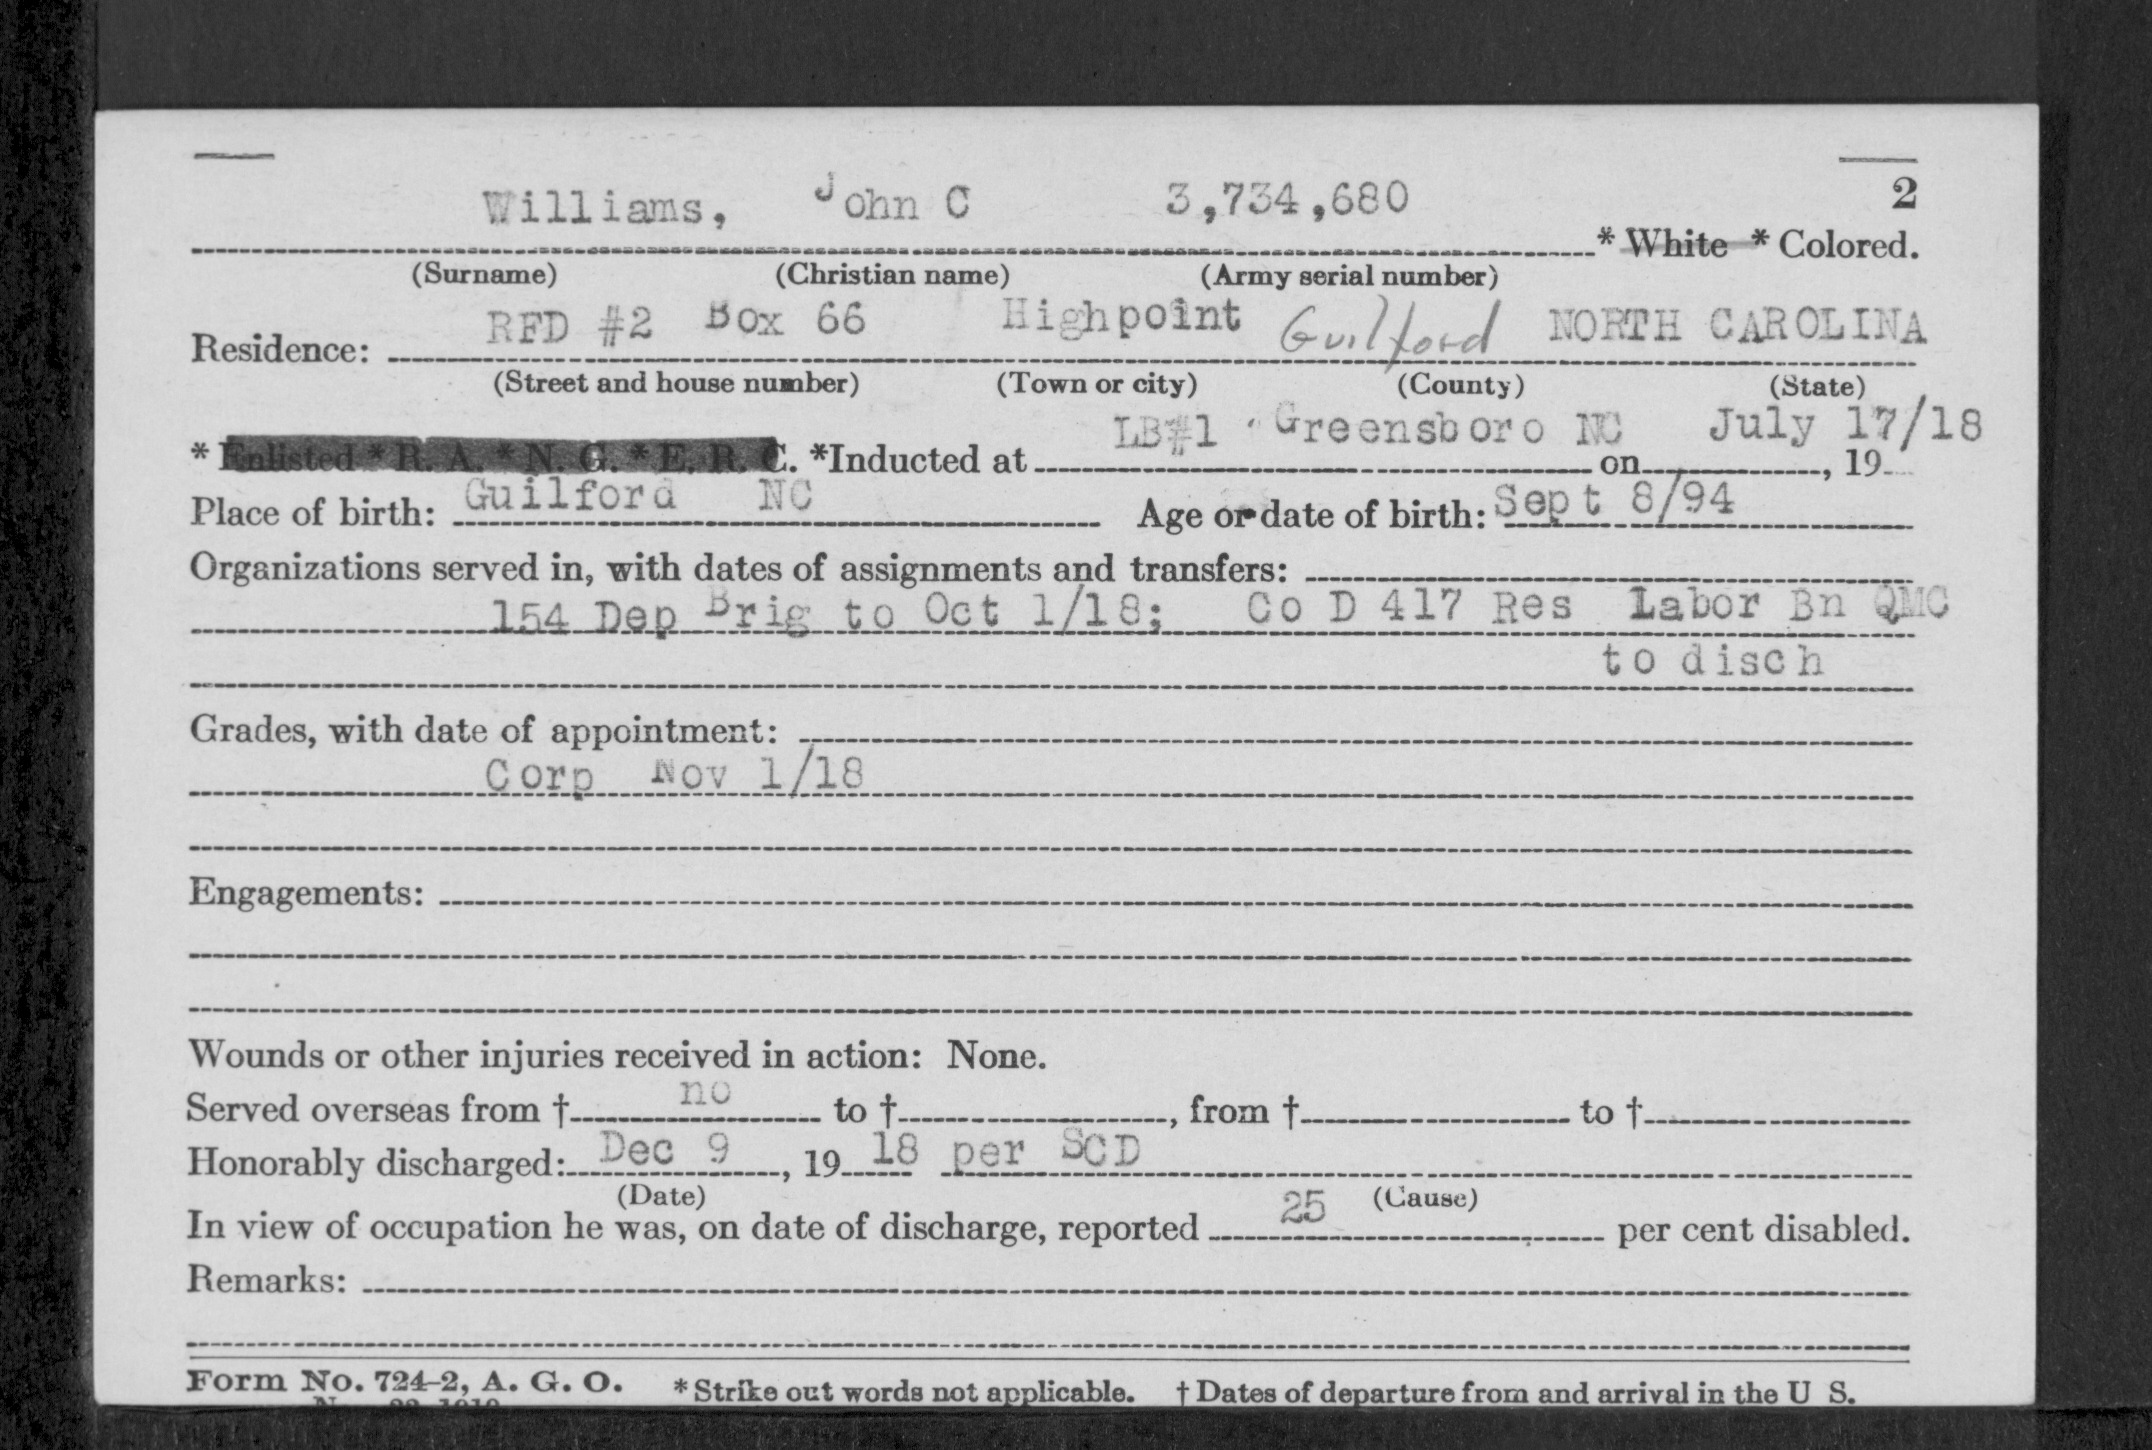 2
Williams, John C 3,734,680 * White * Colored.
(Surname) (Christian name) (Army serial number)
Residence: RFD #2 Box 66 Highpoint Guilford NORTH CAROLINA
(Street and house number) (Town or city) (County) (State)
* Enlisted * R. A. * N. G. * E. R. C. *Inducted at LB#1 Greensboro NC on July 17/18, 19
Place of birth: Guilford NC Age or date of birth: Sept 8/94
Organizations served in, with dates of assignments and transfers:
154 Dep Brig to Oct 1/18; Co D 417 Res Labor Bn QMC
to disch
Grades, with date of appointment:
Corp Nov 1/18
Engagements:
Wounds or other injuries received in action: None.
Served overseas from † no to †, from † to †
Honorably discharged: Dec 9, 19 18 per SCD
(Date) (Cause)
In view of occupation he was, on date of discharge, reported 25 per cent disabled.
Remarks:
Form No. 724-2, A. G. O. * Strike out words not applicable. † Dates of departure from and arrival in the U S.